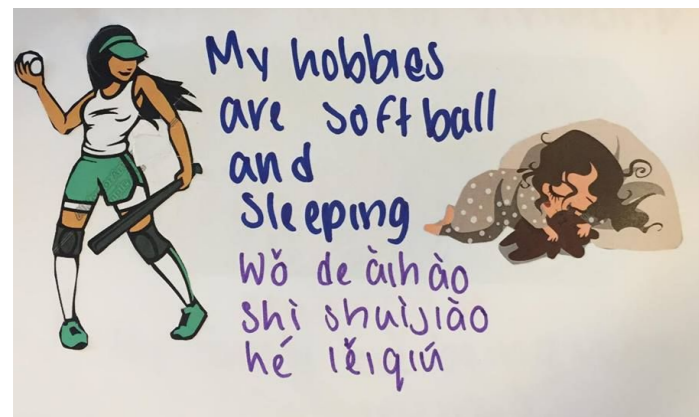 My hobbies
are softball
and
sleeping
Wǒ de àihào
shì shuìjiào
hé lěiqiú